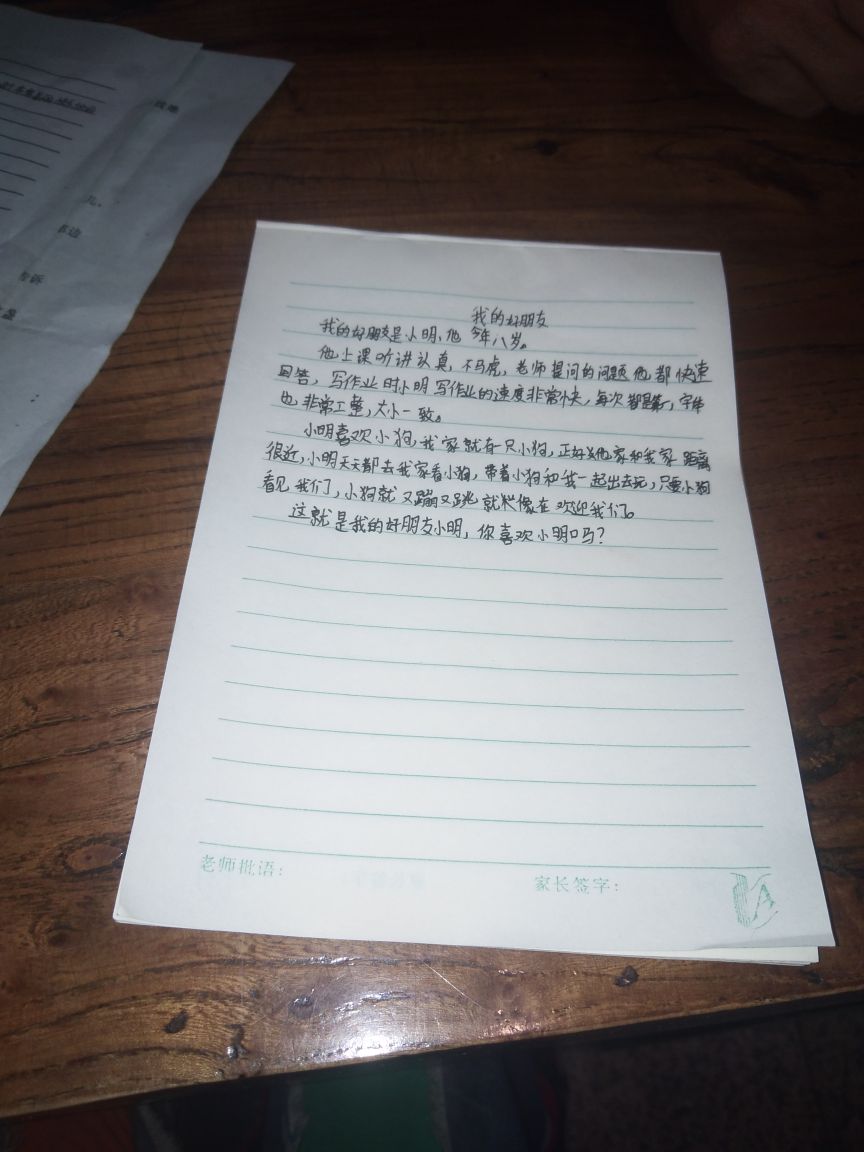 我的好朋友
我的好朋友是小明,他 今年八岁。
他上课听讲认真,不马虎,老师提问的问题他都快速
回答,写作业时小明写作业的速度非常快,每次都是第一,字体
也非常工整,大小一致。
小明喜欢小狗,我家就有一只小狗,正好他家和我家距离
很近,小明天天都去我家看小狗,带着小狗和我一起出去玩,只要小狗
看见我们,小狗就又蹦又跳就好像在欢迎我们。
这就是我的好朋友小明,你喜欢小明吗?
老师批语:
家长签字:
几。
告诉